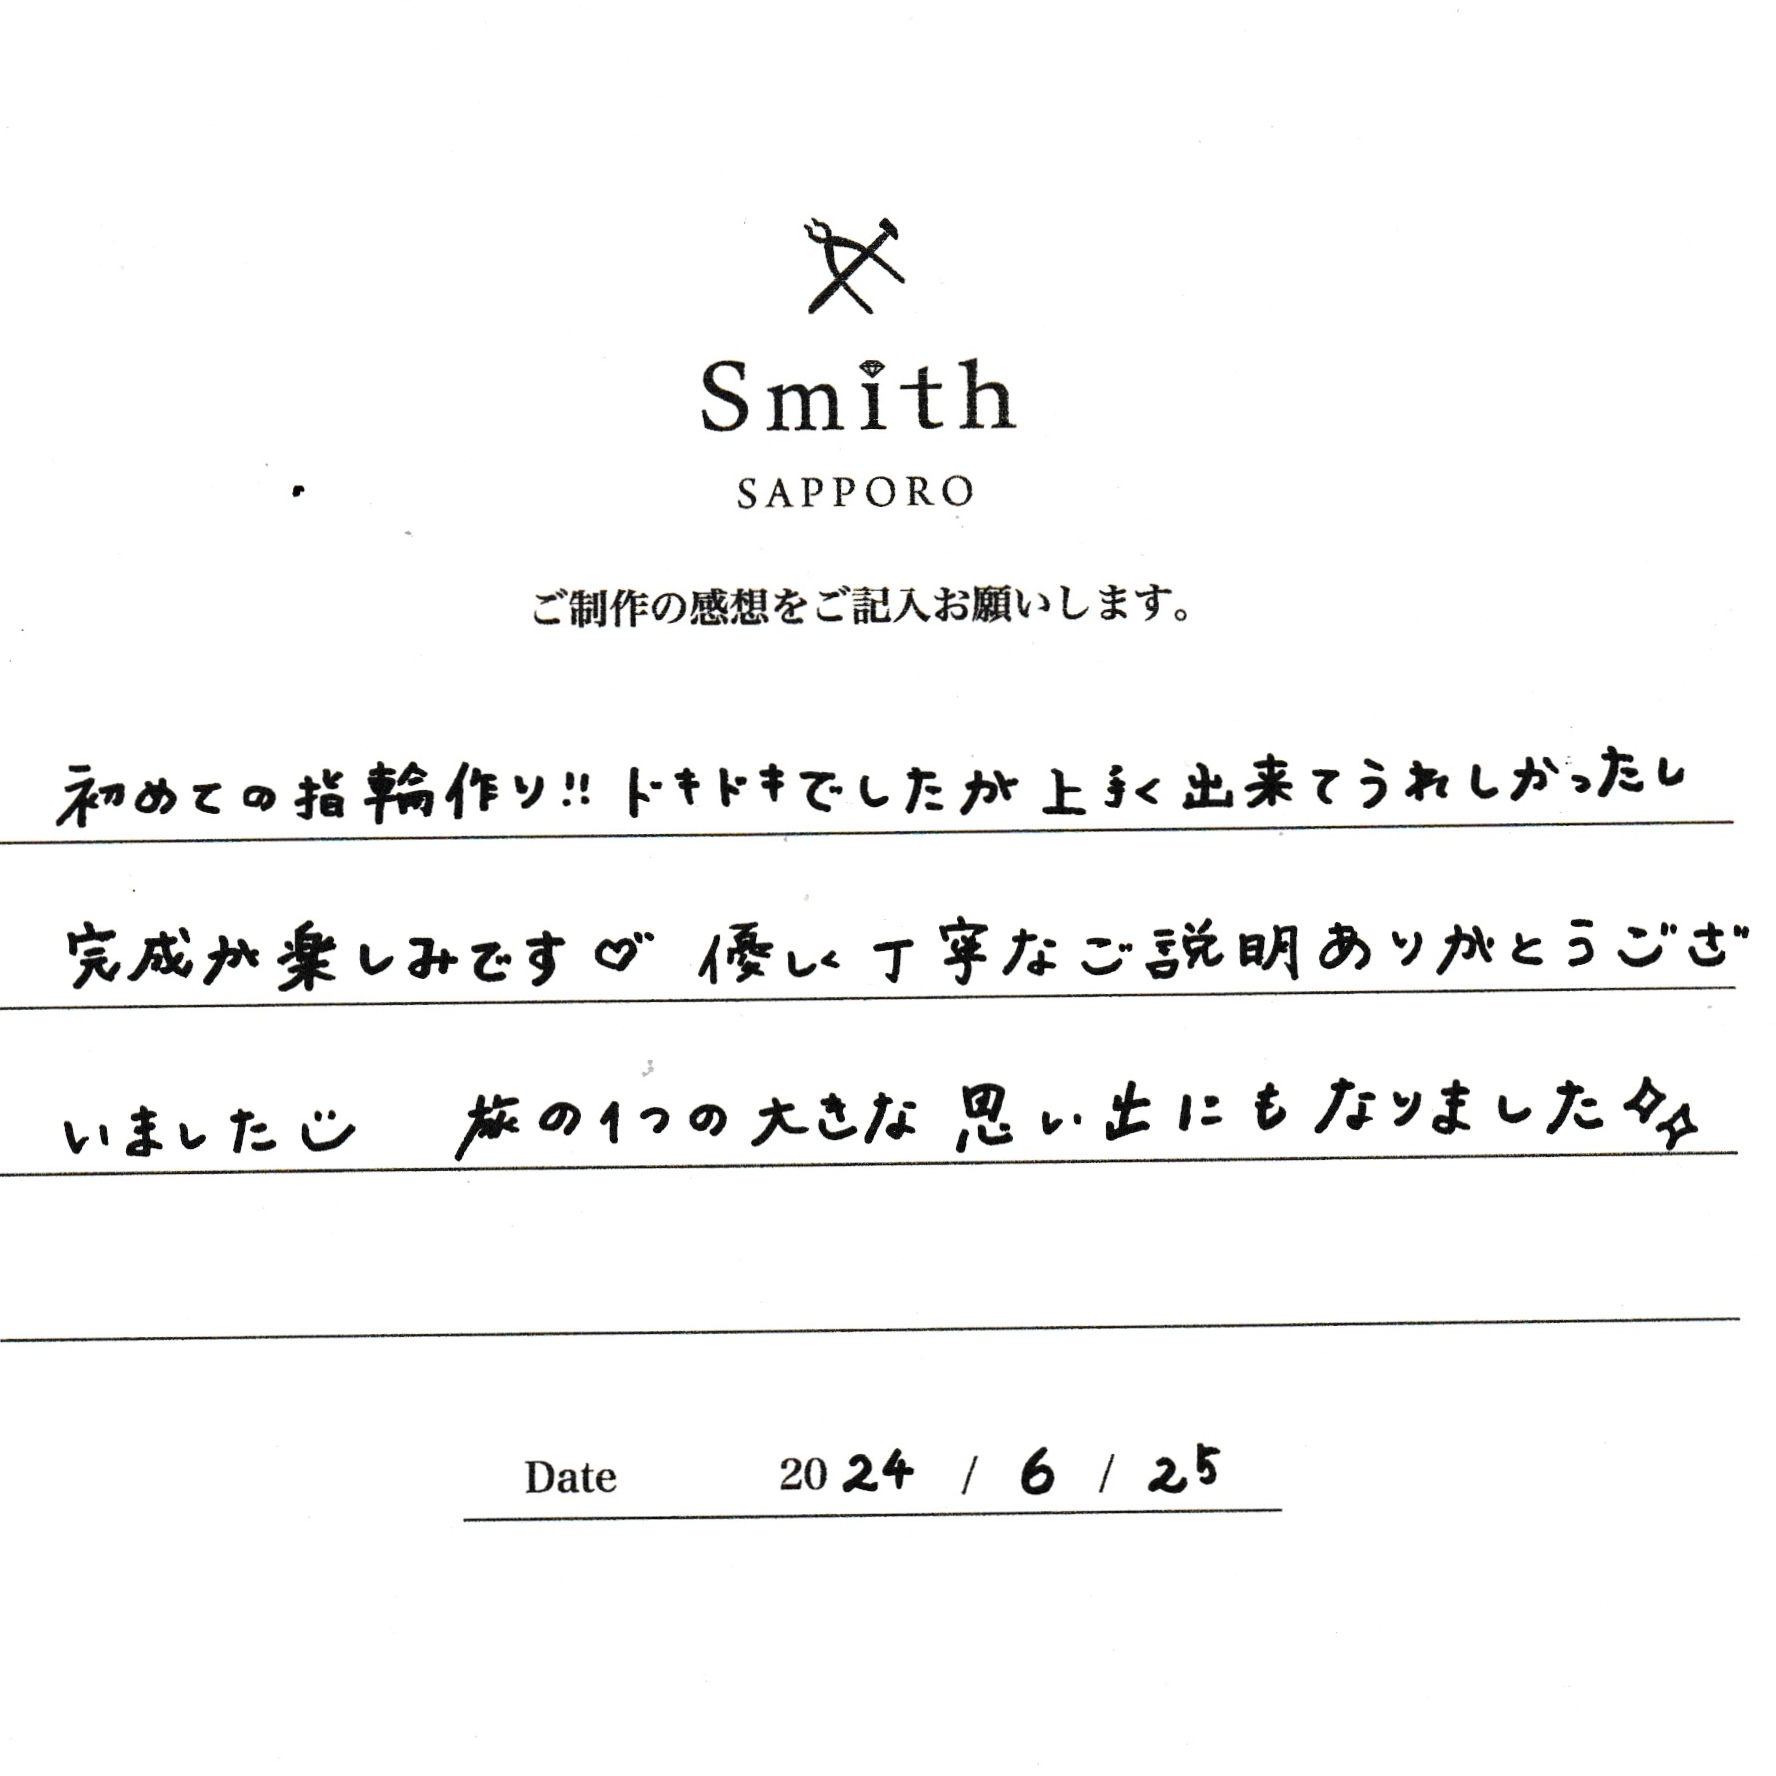 Smith
SAPPORO
ご制作の感想をご記入お願いします。
初めての指輪作り!! ドキドキでしたが上手く出来てうれしかったし
完成が楽しみです♡ 優しく丁寧なご説明ありがとうござ
いました 旅の1つの大きな思い出にもなりました
Date 2024 / 6 / 25